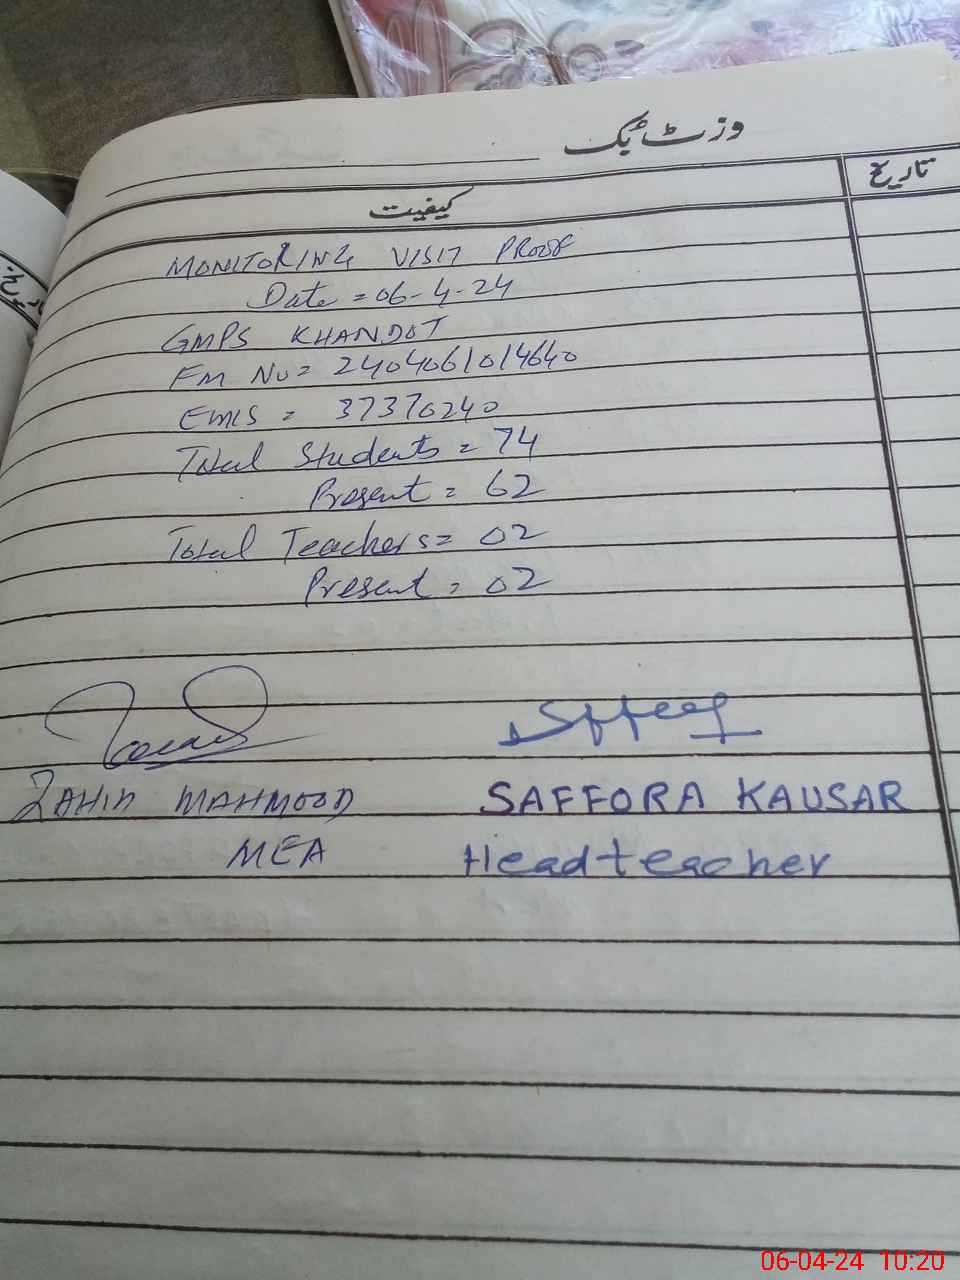 وزٹ بک
تاریخ
کیفیت
MONITORING VISIT PROOF
Date = 06-4-24
GMPS KHANDOT
FM No = 2404061014640
EMIS = 37370240
Total Students = 74
Present = 62
Total Teachers = 02
Present = 02
ZAHID MAHMOOD SAFFORA KAUSAR
MEA Headteacher
06-04-24 10:20